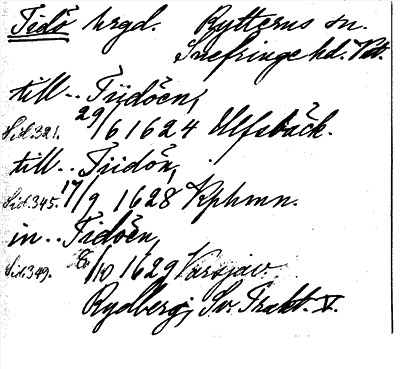 Tidö hrgd. Rytterns sn.
Snefringe hd. Vtt.
till.. Tiidöen,
Sid. 321. 29/6 1624 Elfsback.
till.. Tiidön,
Sid. 345. 17/9 1628 Kphmn.
in.. Tidöen,
Sid. 349. 8/10 1629 Varsjav.
Rydberg, Sv. Trakt. V.